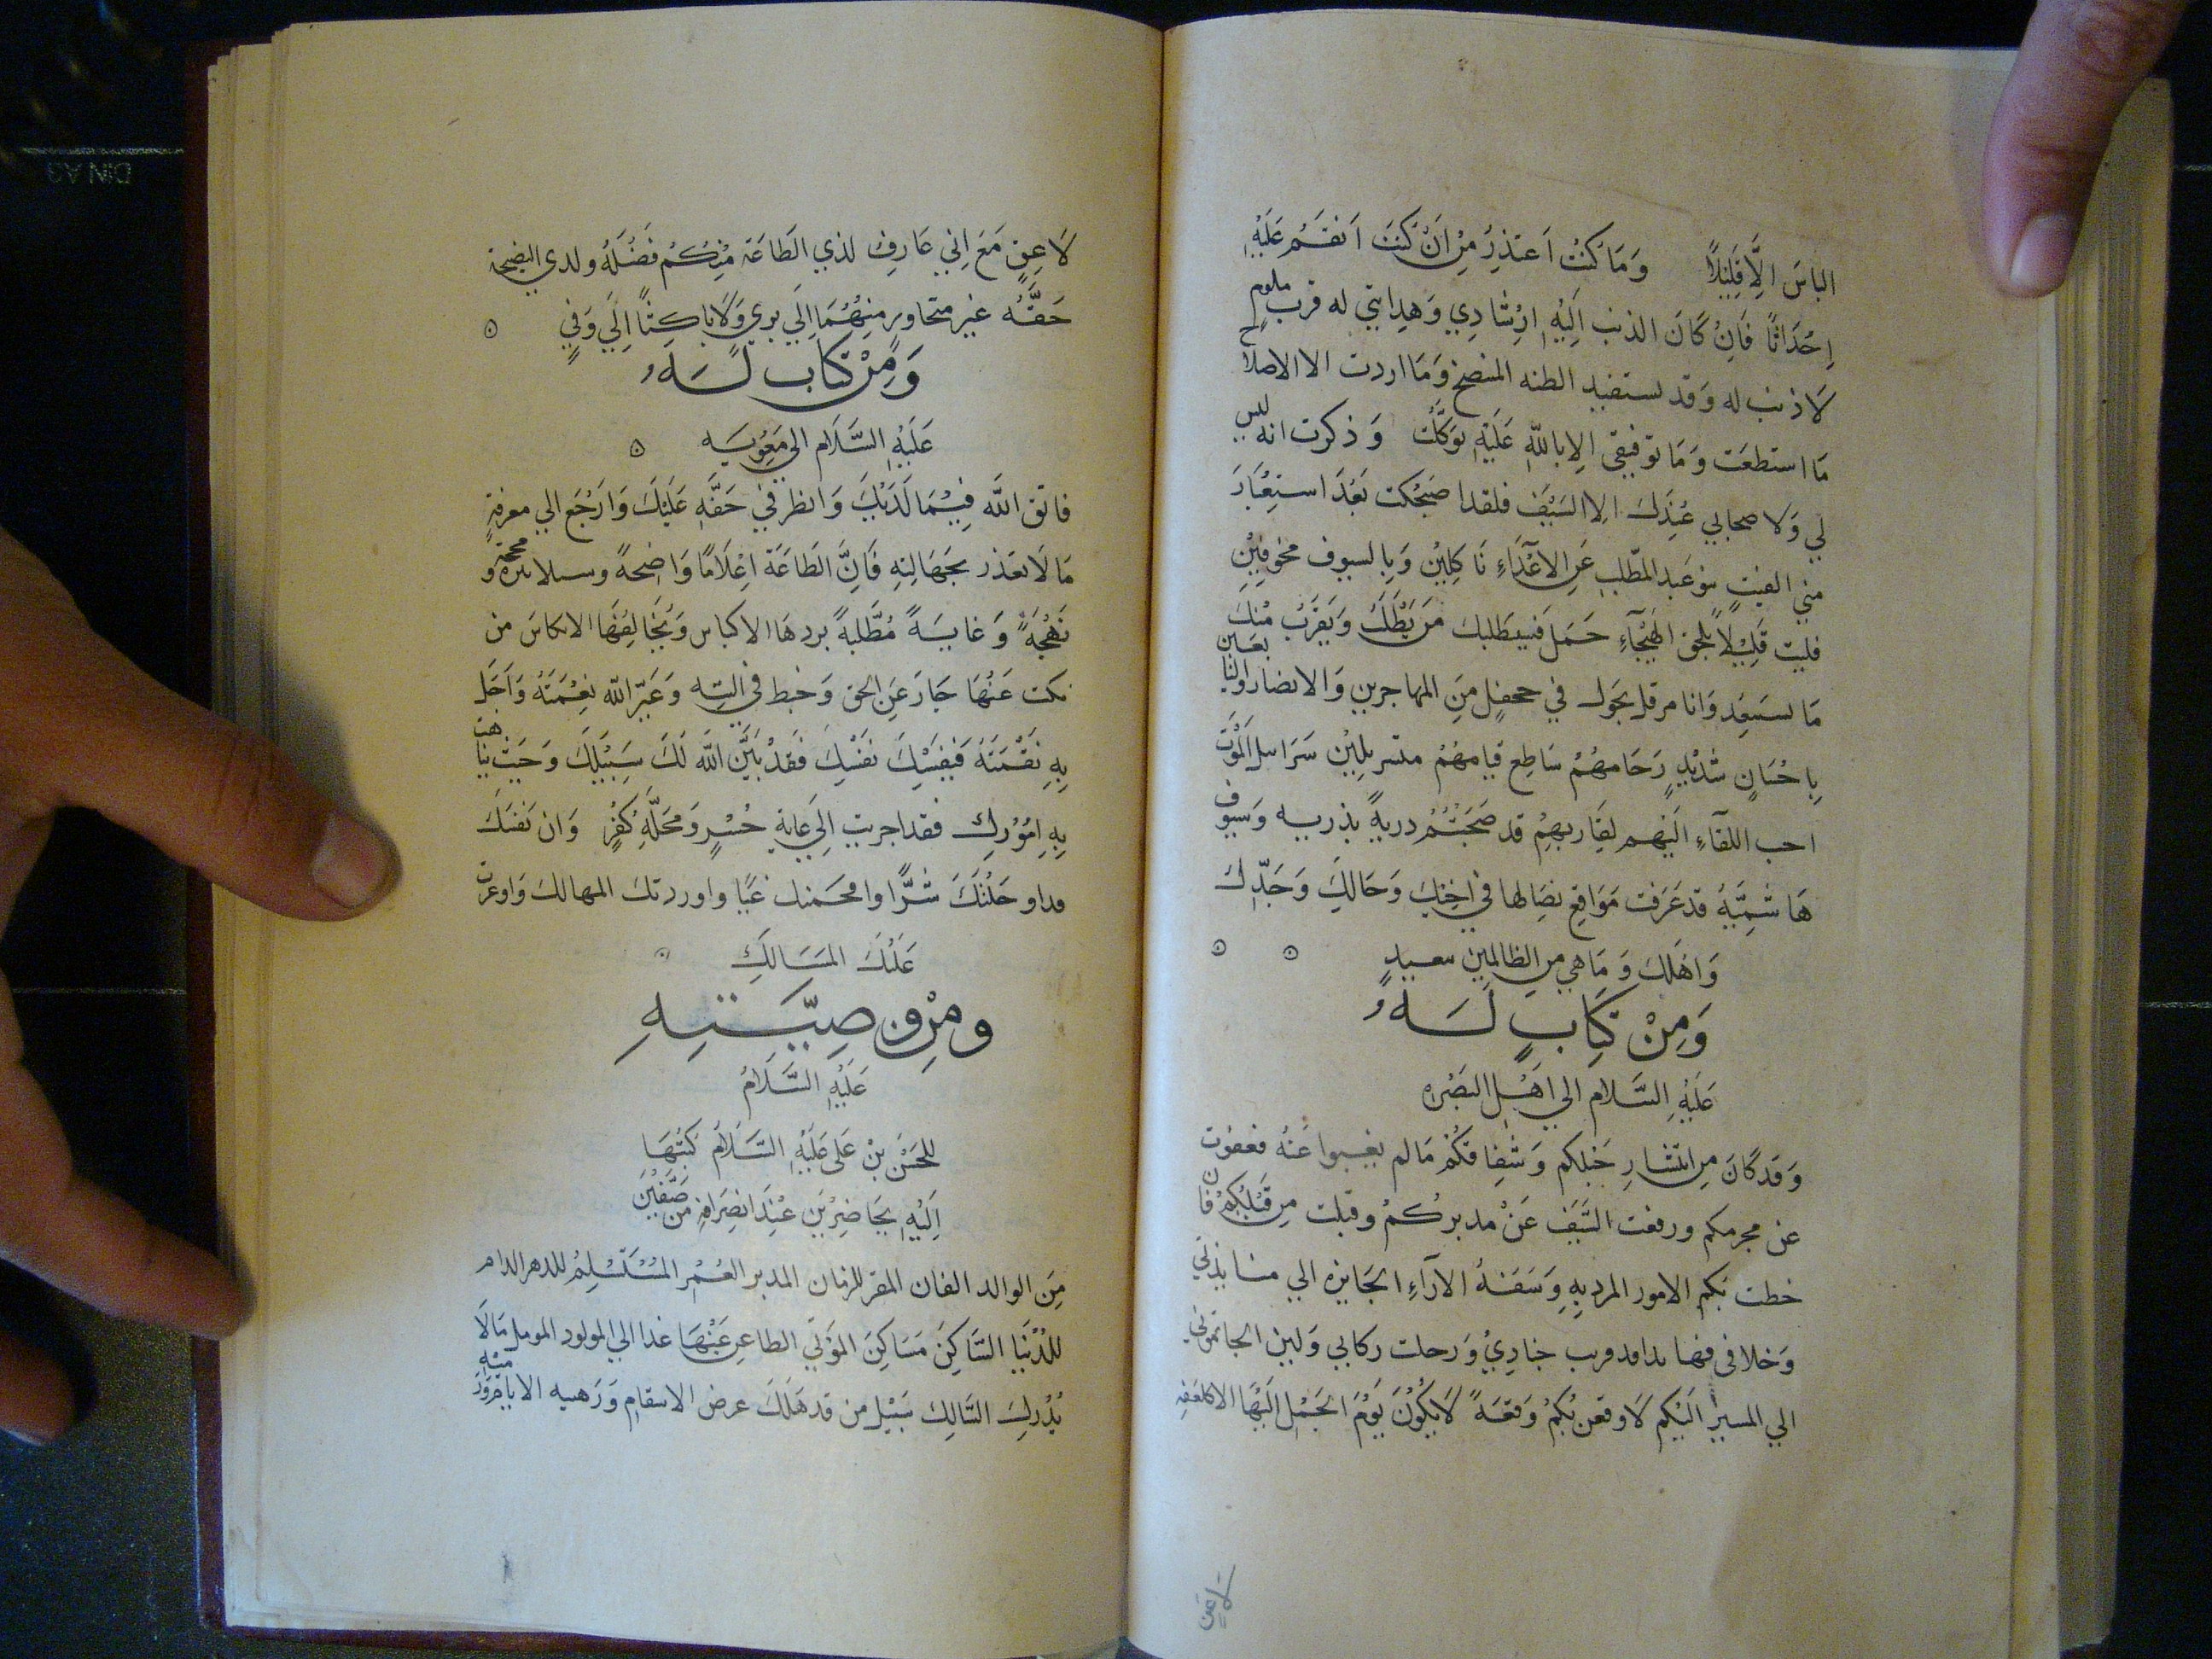 الباسَ اِلَّا قَلِيْلًا وَمَا كُنْتُ اَعتَذِرُ مِنْ اَنْ كُنتُ اَنقَمُ عَلَيْهِ
اِحْدَاثًا فَاِنْ كَانَ الذنب اِلَيْهِ اِرْشَادِي وَهِدايَتي له فرب ملوم
لَا ذنب له وَقد يستفيد الظنه المتنصح وَمَا اردت الا الاصلاح
مَا استطعَت وَمَا توفيقى اِلا باللهِ عَلَيْهِ توَكَّلْت وَ ذكرت انه ليس
لي وَلاصحابي عِنْدَكَ اِلا السَيْفَ فلقد اضحكت بَعْدَ استِعْبَارَ
مَتي الفيت بنو عَبد المطّلب عَنِ الاَعْدَاءِ نَاكِلِيْن وَبِالسيوف مخوفِيْنِ
فلبث قَلِيْلًا يلحق الهَيْجَاءِ حَمَل فَسيطلبك مَن تَطْلبُ وَيَقرَبُ مِنْكَ
مَا تستبعِد وَانا مرقل نحوك في جحفلٍ مِنَ المهاجرين وَالانصار وَالتابعين
بِاحْسَانٍ شَدِيْدٍ زحَامهُمْ سَاطِع قيامهُمْ متسربلِيْن سَرَابيل المَوْت
احب اللقاءِ اليهم لقاربهِمْ قد صَحبَتْهُمْ دريةً بذريه وَسيوف
هَاشِمِيَّةٌ قدعَرَفت مَوَاقِعِ نصَالها في اخِيْك وَخَالِكَ وَجَدّك
وَاهَلكَ وَمَا هي مِنَ الظالِمِين ببعيدٍ
وَمِنْ كِتَابٍ لَهُ
عَلَيْهِ السَّلام الي اَهْلِ البَصْره
وَقَدكَانَ مِن انتشارِ حَبْلِكم وَشِقَاقكُمْ مَا لم تغيبوا عَنهُ فعفوت
عن مجرمكم ورفعت السَّيْفَ عَنْ مدبركمْ وقبلت مِن مقبِلكُمْ فان
خطت بكم الامور المرديهِ وَسَفَهُ الآراءِ الجَايره الي منابذتي
وَخلافى فها انذا قد قربت جيَادِيْ وَرحلت ركابي وَلين الجاتموني
الي المسير اليْكم لَاوقعن بكُمْ وَقعَةً لَا يَكُوْنُ يَوْمُ الجَمَل اليْهَا الا كلعقه
لاعِق
لَاعِقٍ مَعَ اِني عَارِف لذي الطَاعَة مِنْكُمْ فَضْلَهُ ولدي النصيحة
حَقَّهُ غير متجاوز منهُمَا اِلَي بري وَلَا ناكِثًا اِلَي وَفِيٍ
وَمِنْ كتاب لَهُ
عَلَيْهِ السَّلَام الي مَعْوِيَه
فاتق اللّه فِيْمَا لَدَيْكَ وَانظر في حَقِّهِ عَلَيْكَ وَارْجَع الي معرفةِ
مَا لَا تعذر بجَهَالتِهِ فَاِنَّ الطَاعَة اعْلَامًا وَاضحةً وسبلا نيرة وَمحجة
نَهْجَةً وَغايَةً مُطَّلبةً يردهَا الاكياس وَيُخَالِفُهَا الانكاسَ من
نكب عَنْهَا جَارَ عَنِ الحق وَخبط في التيه وَغَيَّر الله نِعْمَتَهُ وَاَحَل
بِهِ نِقْمَتَهُ فَنفسَكَ نفسَكَ فَقدْ بَيَّنَ اللّه لَكَ سَبِيْلكَ وَحَيْث تناهت
بِهِ اُمُوْرك فقد اجريت اِلَي غاية خُسْرٍ وَمحَلَّةِ كُفْرٍ وَان نَفسَكَ
قد اوحَلتْكَ شَرًّا واقحَمتك غيًا واوردتك المهالك وَاوعرت
عَلَيْكَ المَسَالِكِ
ومِنْ وصِيَّتِهِ
عَلَيْهِ السَّلَامُ
للحَسَنْ بنْ عَلى عَلَيْهِ السَّلَامُ كَتبَهَا
اِلَيْهِ بحَاضِرْيَن عِنْدَ انصِرَافه من صَفّيْنَ
مِنَ الوالد الفان المقر للزمان المدبر العُمْر المُسْتَسْلِمُ للدهر الدام
للدُنْيَا السَّاكِنَ مَسَاكِنَ المَوْتي الظاعِن عَنْهَا غدا الي المولود المومل مَالَا
يُدْرِك السَّالِكَ سَبيْل من قد هَلَكَ عرض الاسقامِ وَرَهينه الايام وَرَميّه